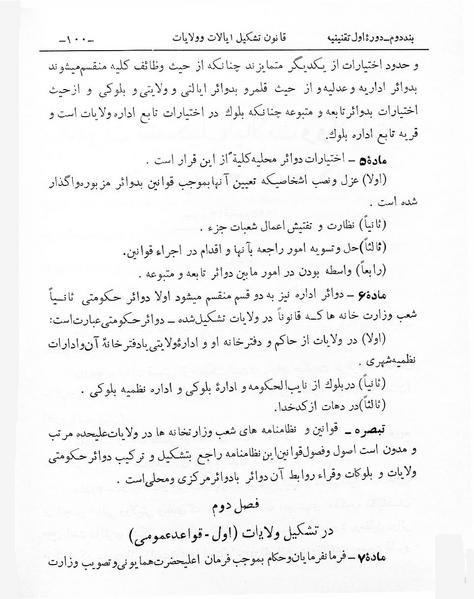 بند دوم ـ دورهٔ اول تقنینیه قانون تشکیل ایالات و ولایات -۱۰۰-
و حدود اختیارات از یکدیگر متمایزند چنانکه از حیث وظائف کلیه منقسم میشوند
بدوائر اداریه و عدلیه و از حیث قلمرو بدوائر ایالتی و ولایتی و بلوکی و از حیث
اختیارات بدوائر تابعه و متبوعه چنانکه بلوك در اختیارات تابع اداره ولایات است و
قریه تابع اداره بلوك.
مادهٔ ۵ ـ اختیارات دوائر محلیه کلیةً از این قرار است .
(اولا) عزل و نصب اشخاصیکه تعیین آنها بموجب قوانین بدوائر مزبوره واگذار
شده است .
(ثانیاً) نظارت و تفتیش اعمال شعبات جزء .
(ثالثاً) حل و تسویه امور راجعه بآنها و اقدام در اجراء قوانین.
(رابعاً) واسطه بودن در امور مابین دوائر تابعه و متبوعه .
مادهٔ ۶ ـ دوائر اداره نیز به دو قسم منقسم میشود اولا دوائر حکومتی ثانیـاً
شعب وزارت خانه ها کـه قانوناً در ولایات تشکیل شده ـ دوائر حکومتی عبارت است:
(اولا) در ولایات از حاکم و دفترخانه او و ادارهٔ ولایتی با دفترخانهٔ آن و ادارات
نظمیه شهری .
(ثانیاً) در بلوك از نایب الحکومه و ادارهٔ بلوکی و اداره نظمیه بلوکی .
(ثالثاً) در دهات از کدخدا.
تبصره ـ قوانین و نظامنامه های شعب وزارتخانه ها در ولایات علیحده مرتب
و مدون است اصول و فصول قوانین این نظامنامه راجع بتشکیل و ترکیب دوائر حکومتی
ولایات و بلوکات و قراء و روابط آن دوائر با دوائر مرکزی و محلی است .
فصل دوم
در تشکیل ولایات (اول - قواعد عمومی)
مادهٔ ۷ ـ فرمانفرمایان و حکام بموجب فرمان اعلیحضرت همایونی و تصویب وزارت